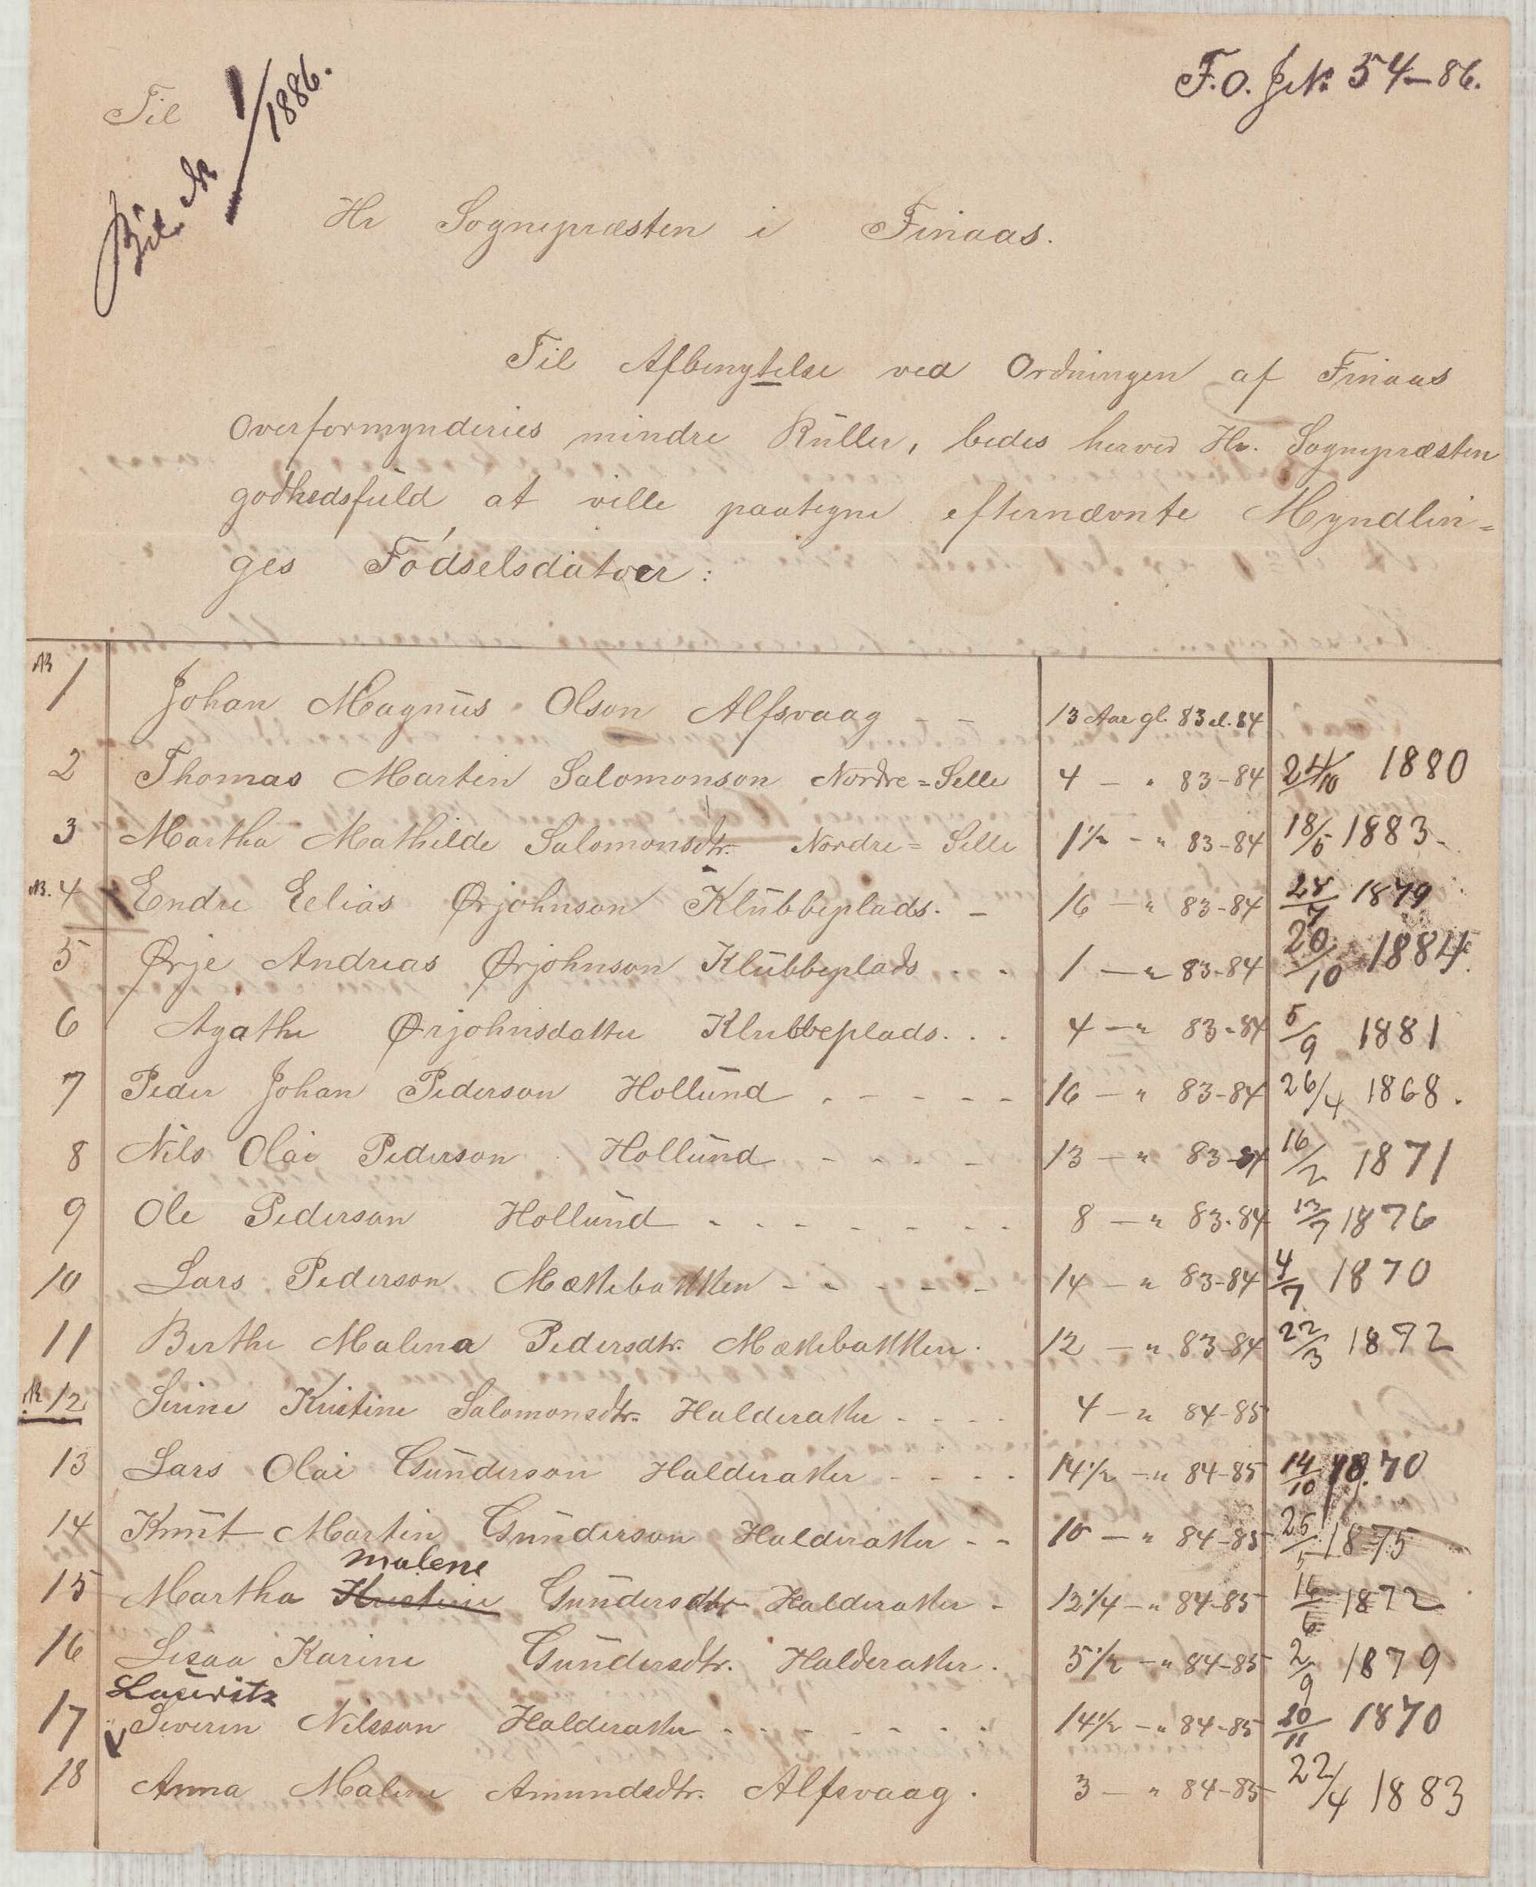 F.O. J.№ 54-86.
Til
Bil. № 1/1886.
Hr Sognepræsten i Finaas.
Til Afbenytelse ved Ordningen af Finaas
Overformynderies mindre Ruller, bedes herved Hr. Sognepræsten
godhedsfuld at ville paategne efternævnte Myndlin=
ges Fódselsdatoer:
№ 1 Johan Magnus Olson Alfsvaag - - 13 Aar gl. 83 el. 84
2 Thomas Martin Salomonson Nordre=Selle 4 - " 83-84 24/10 1880
3 Martha Mathilde Salomonsdtr. Nordre=Selle 1 1/2 - " 83-84 18/5 1883.
№. 4 Endre Eelias Ørjohnson Klubbeplads. - 16 - " 83-84 28/7 1879
5 Ørje Andreas Ørjohnson Klubbeplads . . - 1 - " 83-84 20/10 1884.
6 Agathe Ørjohnsdatter Klubbeplads. . . 4 - " 83-84 5/9 1881
7 Peder Johan Pederson Hollund . - - - - 16 - " 83-84 26/4 1868.
8 Nils Olai Pederson Hollund - - - - 13 - " 83-84 16/2 1871
9 Ole Pederson Hollund - - - - - - - 8 - " 83-84 13/7 1876
10 Lars Pederson Mækkebakken - - - - - 14 - " 83-84 4/7 1870
11 Berthe Malena Pedersdtr. Mækkebakken. 12 - " 83-84 22/3 1872
№ 12 Serine Kristine Salomonsdtr. Halderaker - - - - 4 - " 84-85
13 Lars Olai Gunderson Halderaker - - - - 14 1/2 - " 84-85 14/10 1870
14 Knut Martin Gunderson Halderaker - - 10 - " 84-85 25/5 1875
malene
15 Martha Kristine Gundersdtr Halderaker - 12 1/4 - " 84-85 16/6 1872
16 Lisaa Karine Gundersdtr. Halderaker. 5 1/2 - " 84-85 2/9 1879
Lauritz
17 Severin Nilsson Halderaker - - - - - - - 14 1/2 - " 84-85 20/11 1870
18 Anna Malene Amundsdtr. Alfsvaag. 3 - " 84-85 22/4 1883